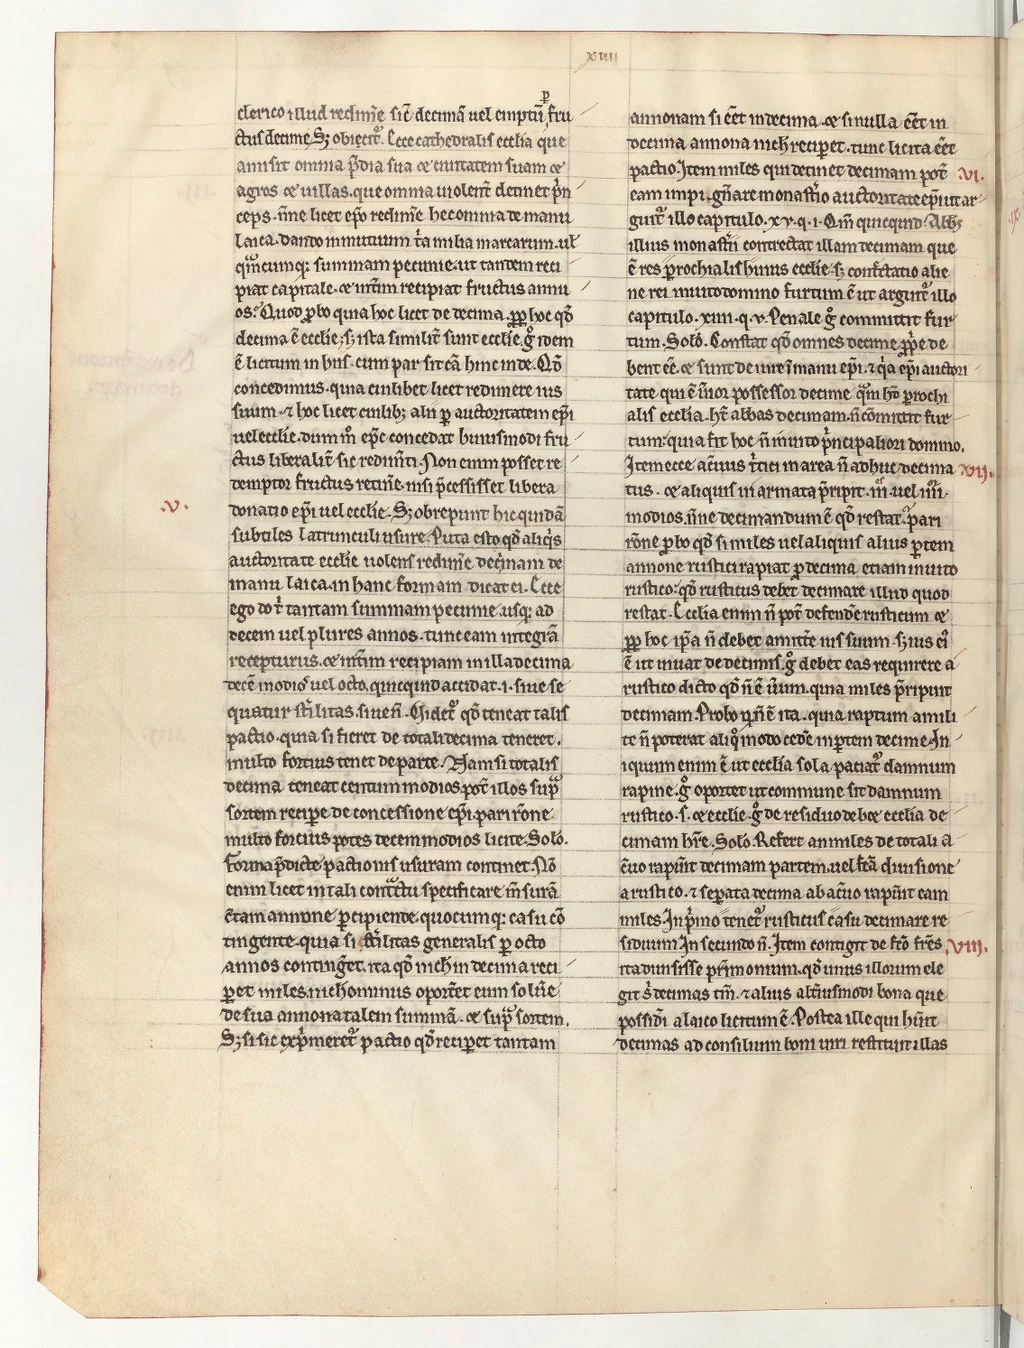 xiiii
clerico illud redimẽ sic̃ decimã uel emptũ fru
ctus decime. Sʒ obicit᷑. Ecce cathedralis ecclia que
amisit omnia p̃dia sua ⁊ ciuitatem suam ⁊
agros ⁊ uillas. que omnia uiolent̃ detinet p̃n
ceps. ñne licet ep̃o redimẽ hec omnia de manu
laica. dando in mutuum t̃a milia marcarum. ul̃
qm̃cumqꝫ summam pecunie. ut tandem reci
piat capitale. ⁊ int̃im recipiat fructus annu
os. Quod ꝓbo quia hoc licet de decima. ꝓp̃ hoc qđ
decima ẽ ecclie. sʒ ista similit̃ sunt ecclie. g̊ idem
ẽ licitum in hiis. cum par sit cã hinc inde. Qđ
concedimus. quia cuilibet licet redimere ius
suum. ⁊ hoc licet cuilibʒ alii ꝑ auctoritatem ep̃i
uel ecclie. dum m̊ ep̃c concedat huiusmodi fru
ctus liberalit̃ sic redim̃ti. Non enim posset re
demptor fructus retinẽ. nisi p̃cessisset libera
donatio ep̃i uel ecclie. Sʒ obrepunt hic quidã
.v.
subtiles latrunculi usure. Puta esto qđ aliq̃s
auctoritate ecclie uolens redimẽ decimam de
manu laica. in hanc formam dicat ei. Ecce
ego do t̃ tantam summam pecunie. usqꝫ ad
decem uel plures annos. tunc eam integrã
recepturus. ⁊ int̃im recipiam in illa decima
decẽ modios uel octo. quicquid accidat. i. siue se
quatur st̃ilitas. siue ñ. Uidet᷑ qđ teneat talis
pactio. quia si fieret de totali decima teneret.
multo fortius tenet de parte. Nam si totalis
decima teneat centum modios. pot̃ illos sup̃
sortem recipe de concessione ep̃i. pari rõne
multo forcius potes decem modios licite. Solõ.
Forma p̃dicte pactionis usuram continet. Nõ
enim licet in tali cont̃ctu specificare m̃surã
c̃tam annone ꝑcipiende. quocumqꝫ casu cõ
tingente. quia si st̃ilitas generalis ꝑ octo
annos contingẽt. ita qđ nich̃ in decima reci
ꝑet miles. nichominus oportet eum soluẽ
de sua annona talem summã. ⁊ sup̃ sortem.
Sʒ si sic exp̃meret᷑ pactio qđ reciꝑet tantam
annonam si eẽt in decima. ⁊ si nulla eẽt in
decima annona nich̃ reciꝑet. tunc licita eẽt
pactio. Item miles qui detinet decimam pot̃ .VI.
eam impignãre monast̃io auctoritate ep̃i. ut ar
guit᷑ illo capitulo. xv. q. i. Qm̃ quicquid. Abbʒ
illius monast̃ii contrectat illam decimam que
ẽ res ꝑrochialis huius ecclie. sʒ cont̃ctatio alie
ne rei inuito domino furtum ẽ ut arguit᷑ illo
capitulo. xiiii. q. v. Penale. g̊ committit fur
tum. Solõ. Constat qđ omnes decime ꝓp̃e de
bent eẽ. ⁊ sunt de iure ĩ manu ep̃i. ⁊ q̃a ep̃i auctori
tate qui ẽ ũior possessor decime q̃m hõ ꝑrochi
alis ecclia. hт̃ abbas decimam. ñ cõmittit fur
tum. quia fit hoc ñ inuito p̃ncipaliori domino.
Item ecce ac̃uus t̃tici in area ñ adhuc decima XII.
tus. ⁊ aliquis in armata p̃ripit. iii. uel iiii.
modios. ñne decimandum ẽ qđ restat. A pari
rõne ꝓbo qđ si miles uel aliquis alius ꝑtem
annone rustici rapiat ꝓ decima etiam inuito
rustico. qđ rusticus debet decimare illud quod
restat. Ecclia enim ñ pot̃ defendẽ rusticum ⁊
ꝓp̃ hoc ip̃a ñ debet amittẽ ius suum. sʒ ius ei᷑
ẽ ut uiuat de decimis. g̊ debet eas requirere a
rustico dicto qđ ñ ẽ ũum. quia miles p̃ripuit
decimam. Probo q̃ ñ ẽ ita. quia raptum a mili
te ñ poterat aliq̊ modo cedẽ in ꝑtem decime. In
iquum enim ẽ ut ecclia sola paciat᷑ damnum
rapine. g̊ oportet ut commune sit damnum
rustico. s. ⁊ ecclie. g̊ de residuo debet ecclia de
cimam hr̃e. Solõ. Refert an miles de totali a
c̃uo rapũit decimam partem. uel fc̃a diuisione
a rustico. ⁊ seꝑata decima ab ac̃uo rapũit eam
miles. In p̃mo tenet᷑ rusticus casu decimare re
siduum. In secundo ñ. Item contigit de fc̃o fr̃es VIII.
ita diuisisse pr̃imonium. qđ unus illorum ele
git s̃ decimas tm̃. ⁊ alius alt̃iusmodi bona que
possidi a laico licitum ẽ. Postea ille qui hũit
decimas ad consilium boni uiri restituit illas